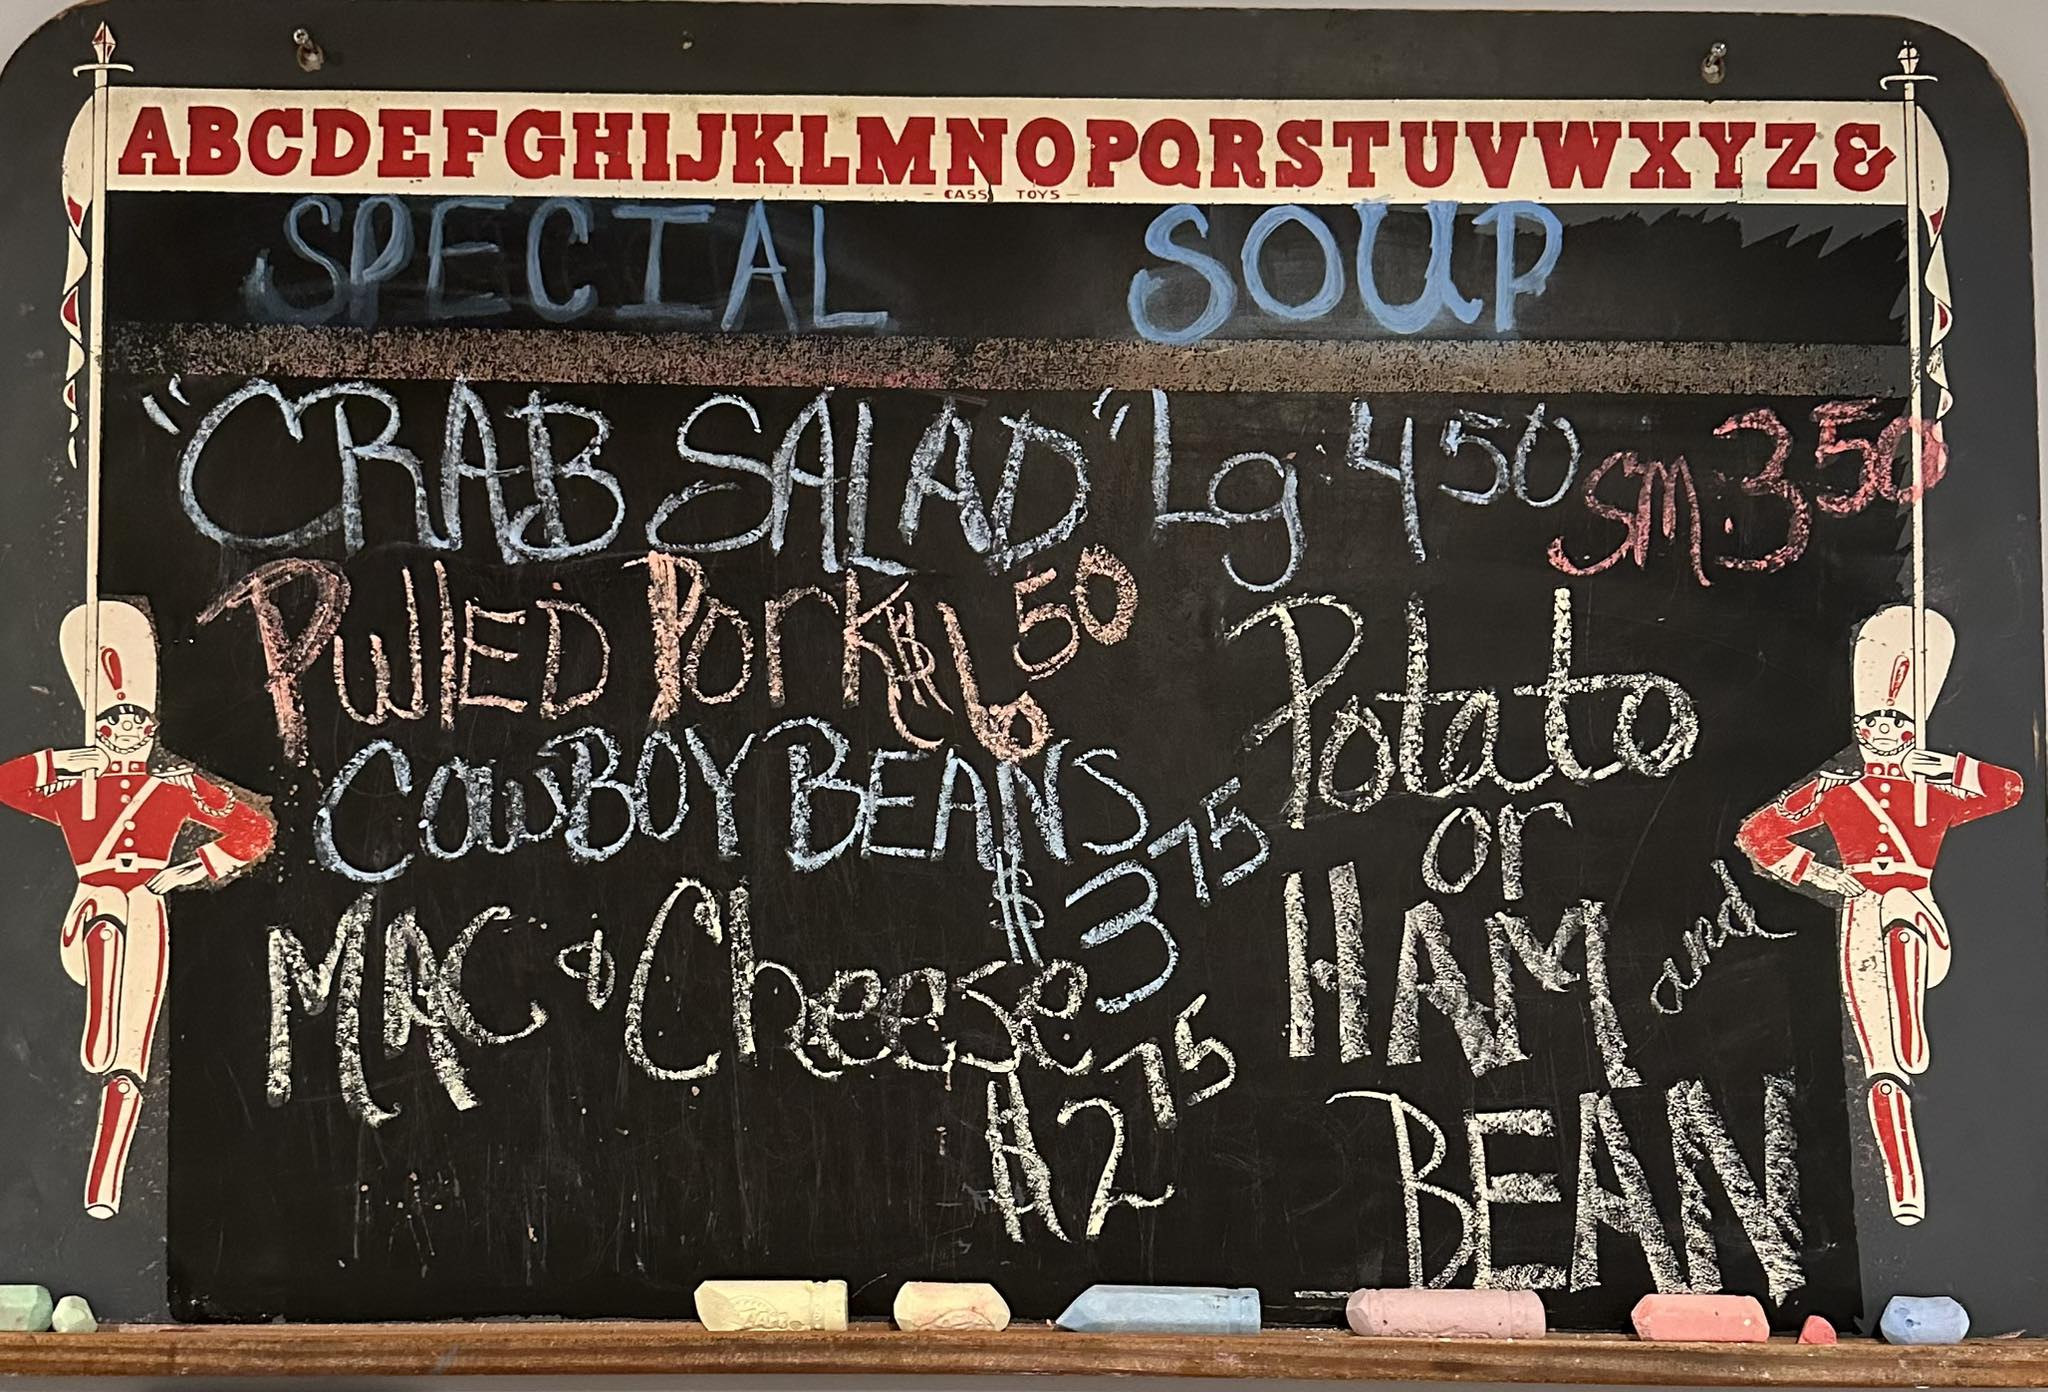 ABCDEFGHIJKLMNOPQRSTUVWXYZ&
- CASS TOYS -
SPECIAL
"CRAB SALAD"
PullED Pork $6 50
COWBOY BEANS
$3 75
MAC & Cheese
$2 75
SOUP
Lg 4 50 SM. 3 50
Potato
or
HAM and
BEAN